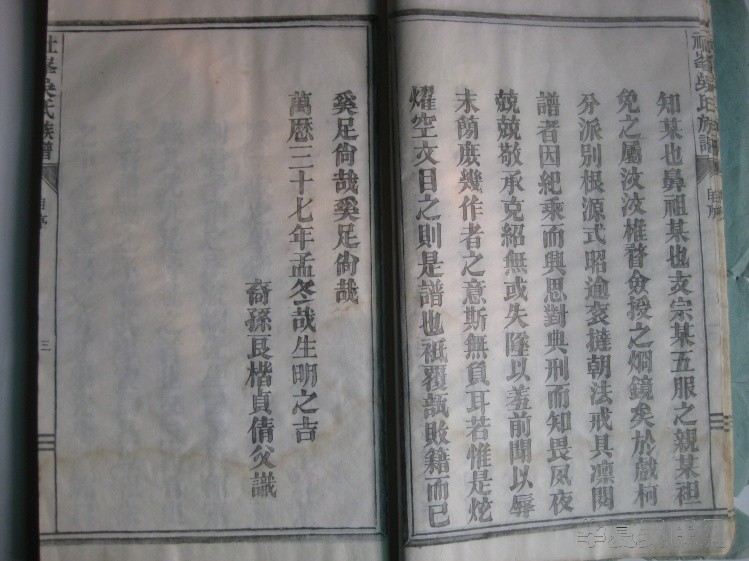 吳氏族譜
自序
知某也鼻祖某也支宗某五服之親某祖
免之屬汶汶椎瞀僉授之烱鏡矣於戲柯
分派別根源式昭逾袠撻朝法戒具凛閱
譜者因紀乘而興思對典刑而知畏夙夜
兢兢敬承克紹無或失墜以羞前聞以辱
末裔庶幾作者之意斯無負耳若惟是炫
燿空文目之則是譜也祇覆瓿敗籍而已
奚足尙哉奚足尙哉
萬厯三十七年孟冬哉生明之吉
裔孫良楷貞倩父識
吳氏族譜
自序
三